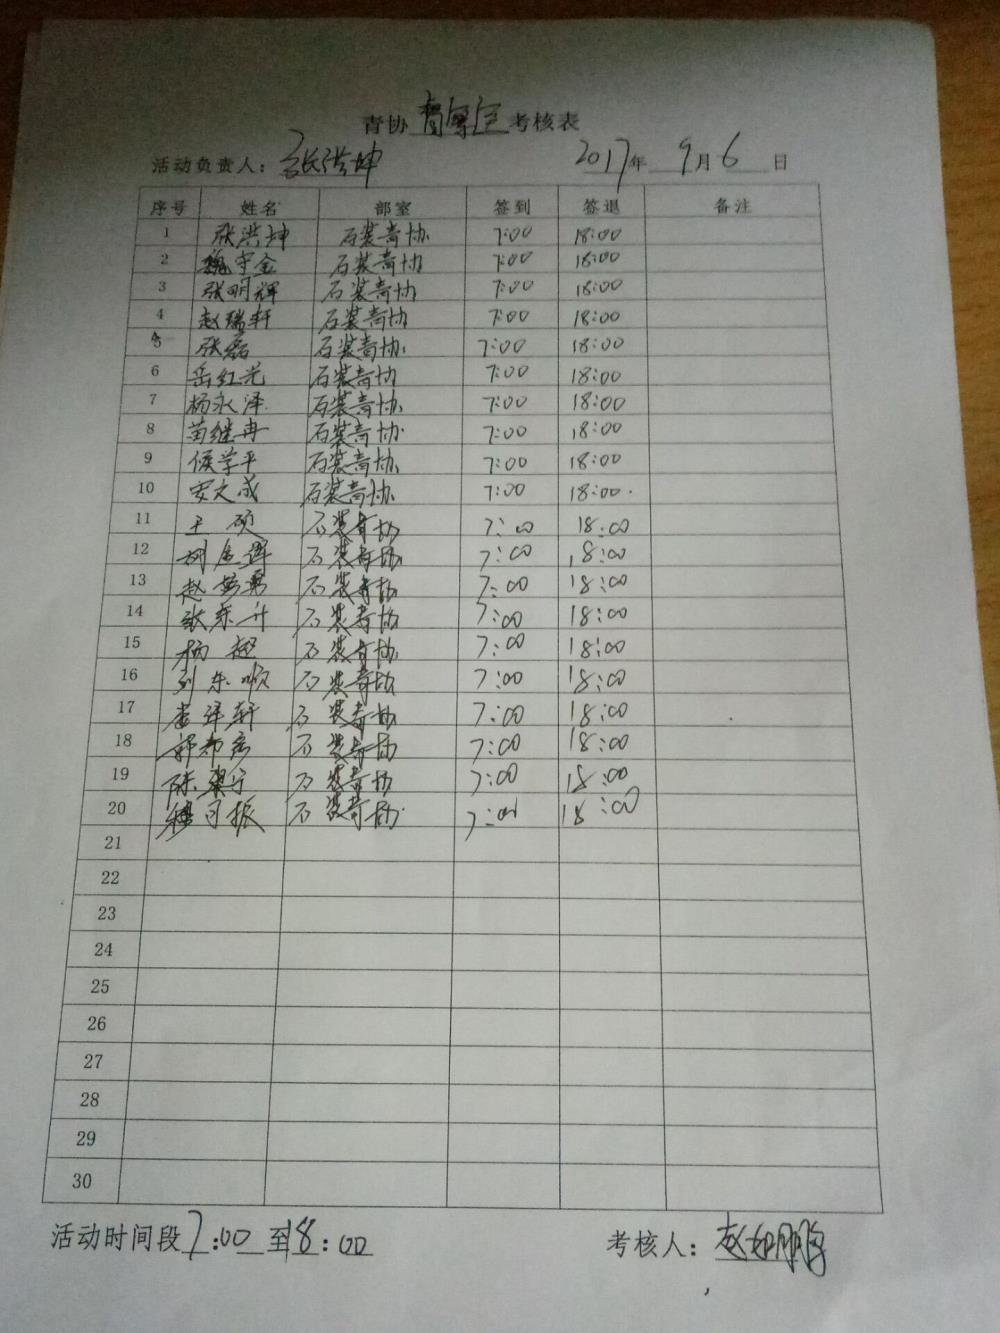 青协 考核表
活动负责人：张洪坤 2017年 9月 6 日
序号 姓名 部室 签到 签退 备注
1 张洪坤 石装青协 7:00 18:00
2 魏守金 石装青协 7:00 18:00
3 张明辉 石装青协 7:00 18:00
4 赵瑞轩 石装青协 7:00 18:00
5 张磊 石装青协 7:00 18:00
6 岳红光 石装青协 7:00 18:00
7 杨永泽 石装青协 7:00 18:00
8 苗继冉 石装青协 7:00 18:00
9 侯学平 石装青协 7:00 18:00
10 安文成 石装青协 7:00 18:00
11 王硕 石装青协 7:00 18:00
12 石装青协 7:00 18:00
13 赵 勇 石装青协 7:00 18:00
14 张东升 石装青协 7:00 18:00
15 杨超 石装青协 7:00 18:00
16 刘东顺 石装青协 7:00 18:00
17 轩 石装青协 7:00 18:00
18 石装青协 7:00 18:00
19 陈 石装青协 7:00 18:00
20 可振 石装青协 7:00 18:00
21
22
23
24
25
26
27
28
29
30
活动时间段7:00至18:00 考核人：赵如鹏